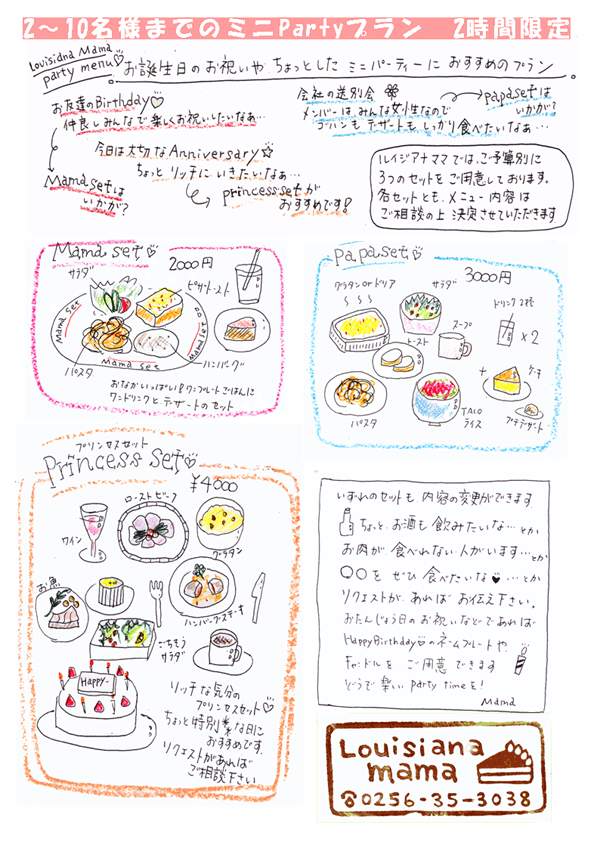 2〜10名様までのミニPartyプラン 2時間限定
Louisiana Mama
party menu♡
お誕生日のお祝いや、ちょっとしたミニパーティーにおすすめのプラン
お友達のBirthday♡
仲良しみんなで楽しくお祝いしたいなぁ…
Mama setは
いかが?
会社の送別会
メンバーはみんな女性なので
ゴハンもデザートもしっかり食べたいなぁ…
papasetは
いかが?
今日は大切なAnniversary☆
ちょっとリッチにいきたいなぁ…
princess setが
おすすめです!
ルイジアナママでは、ご予算別に
3つのセットをご用意しております。
各セットとも、メニュー内容は
ご相談の上決定させていただきます
Mama set♡
2000円
サラダ
ピザトースト
Mama set
Mama set
Mama set
パスタ
ハンバーグ
おなかいっぱい!!ワンプレートごはんに
ワンドリンクとデザートのセット
papaset♡
3000円
グラタンorドリア
サラダ
ドリンク2杯
スープ
×2
トースト
ケーキ
+
パスタ
TACO
ライス
プチデザート
プリンセスセット
Princess set♡
¥4000
ワイン
ローストビーフ
グラタン
お魚
ハンバーグステーキ
ごちそう
サラダ
Happy-
リッチな気分の
プリンセスセット♡
ちょっと特別な日に
おすすめです。
リクエストがあれば
ご相談下さい
いずれのセットも内容の変更ができます
ちょっとお酒も飲みたいな…とか、
お肉が食べれない人がいます…とか
○○をぜひ食べたいな♥…とか
リクエストがあればお伝え下さい。
おたんじょう日のお祝いなどであれば
HappyBirthday♡のネームプレートや、
キャンドルをご用意できます
どうぞ楽しいparty timeを!
Mama
Louisiana
mama
☎0256-35-3038